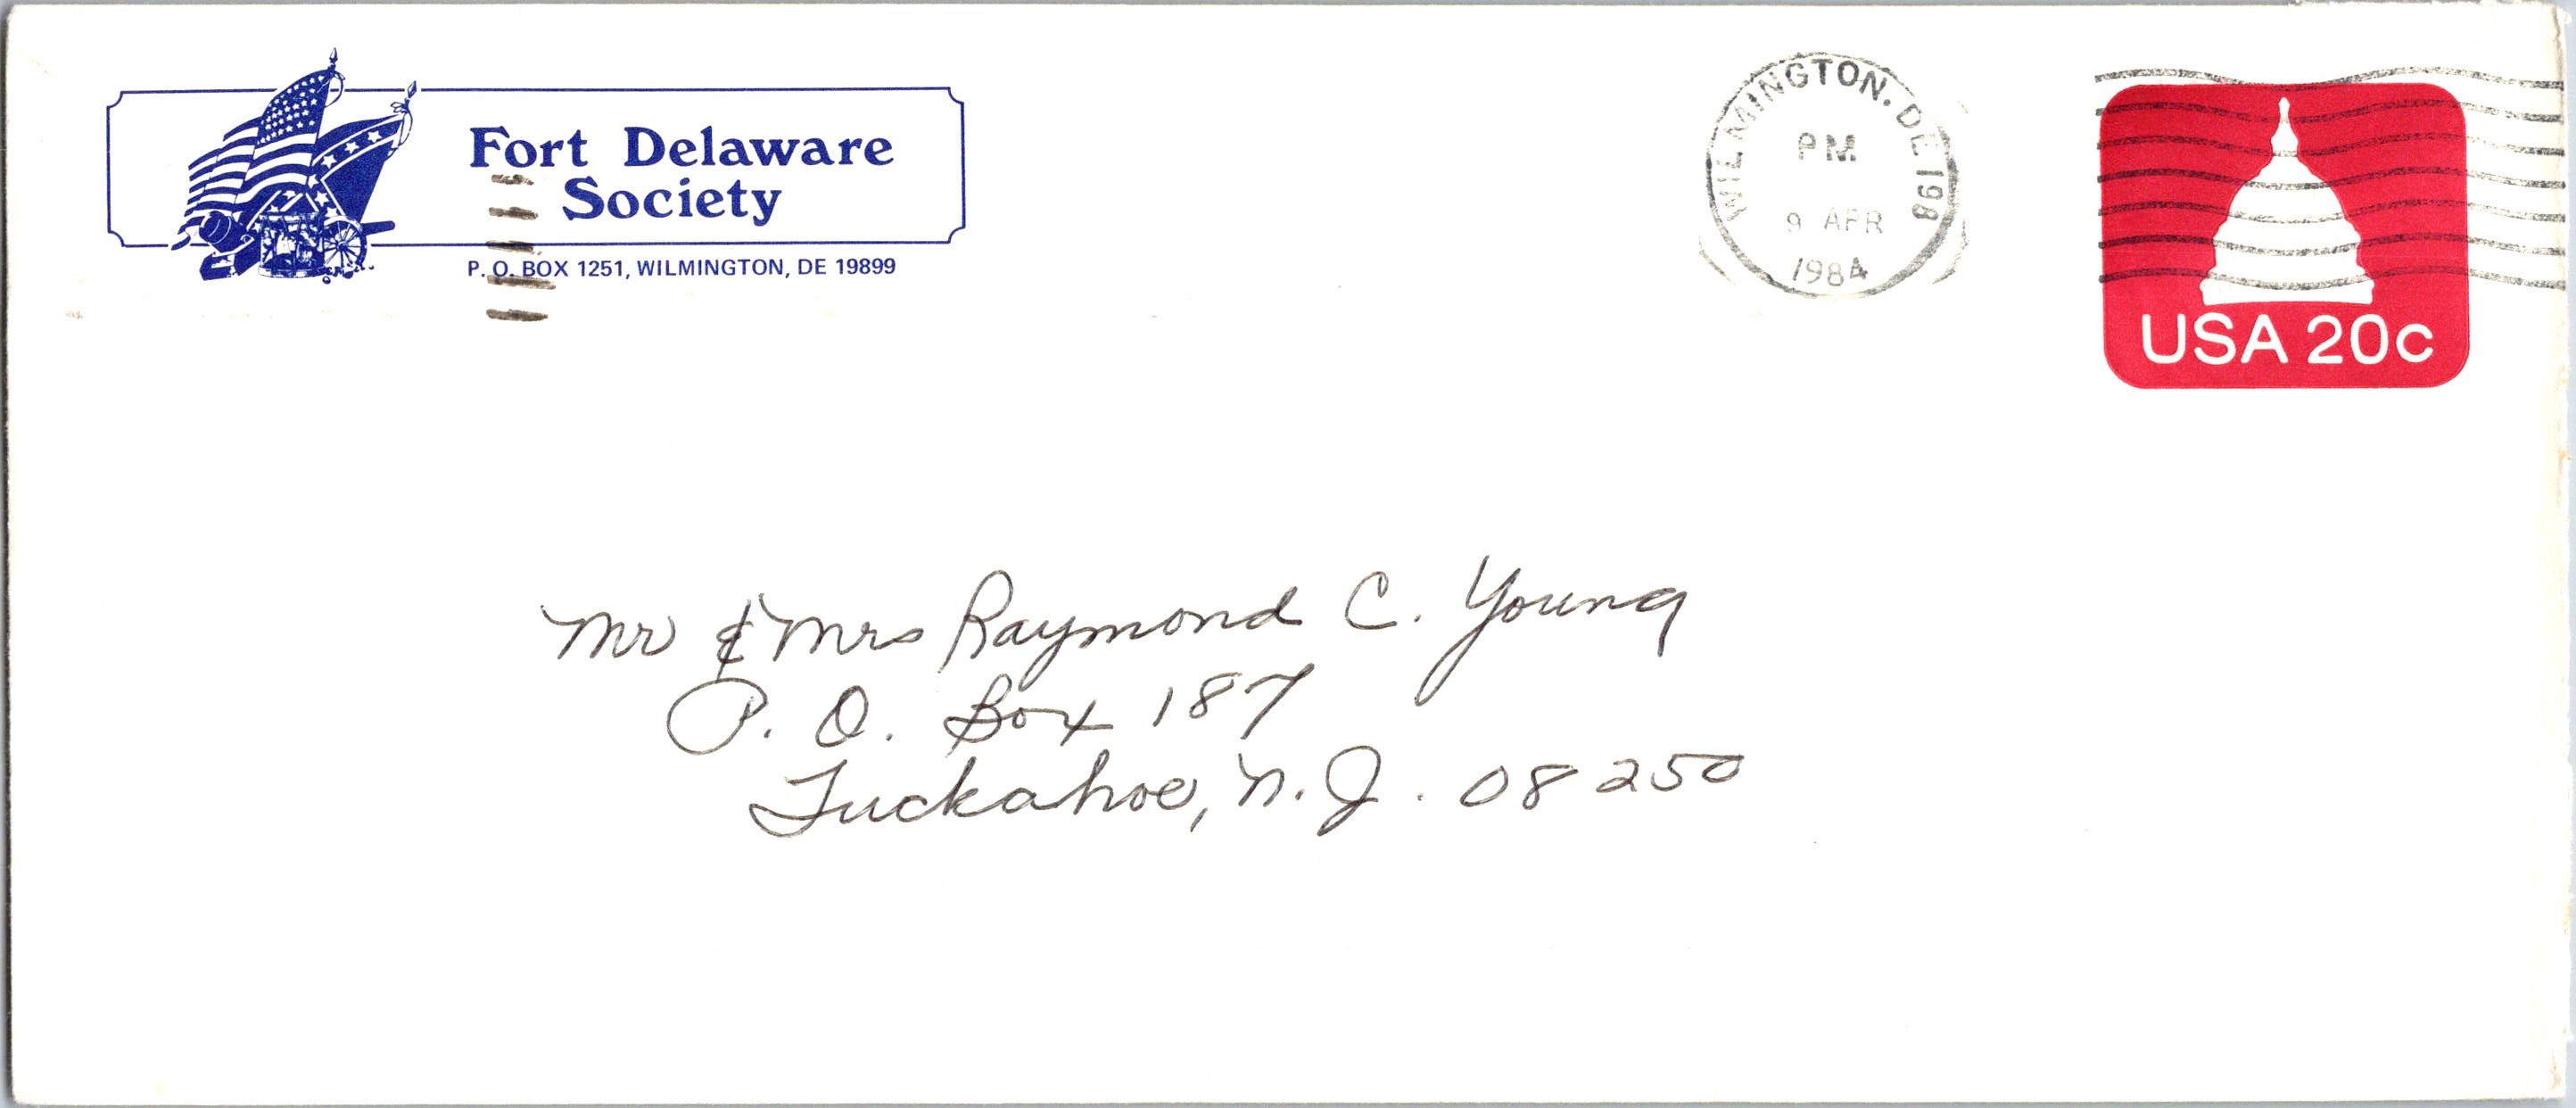 Fort Delaware
Society
P. O. BOX 1251, WILMINGTON, DE 19899
WILMINGTON, DE 198
PM
9 APR
1984
USA 20c
Mr & Mrs Raymond C. Young
P. O. Box 187
Tuckahoe, N. J. 08250